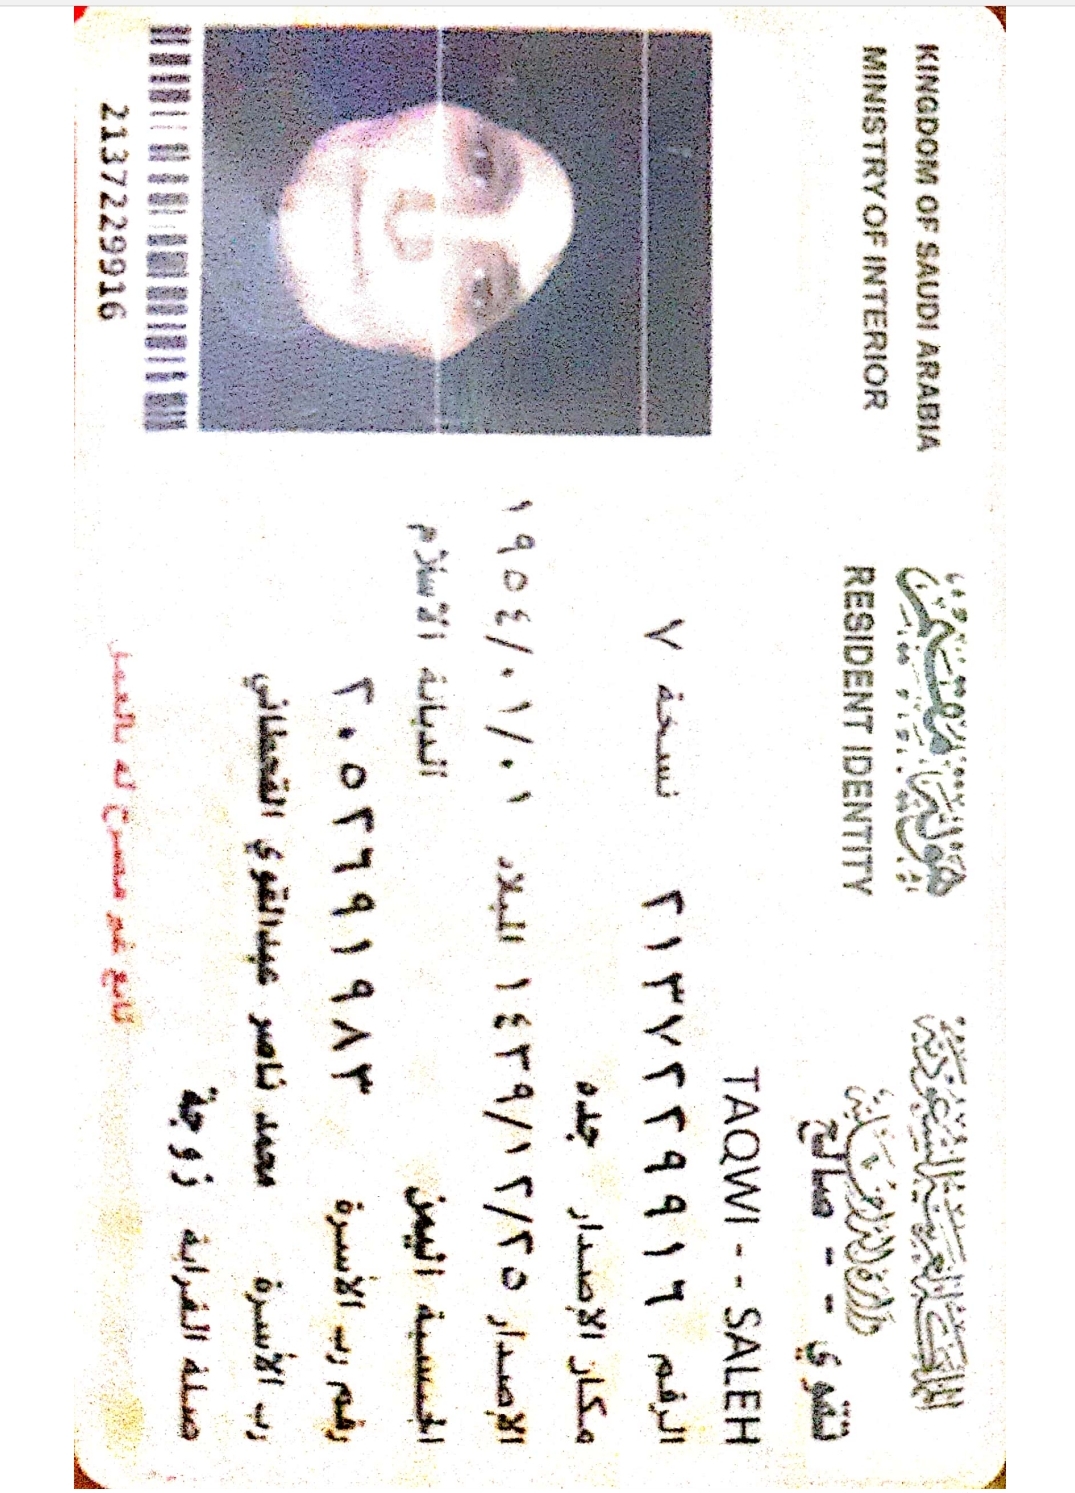 المملكة العربية السعودية
وزارة الداخلية
هوية مقيم
RESIDENT IDENTITY
KINGDOM OF SAUDI ARABIA
MINISTRY OF INTERIOR
تقوي - - صالح
TAQWI - - SALEH
الرقم ٢١٣٧٢٢٩٩١٦ نسخة ٧
مكان الإصدار جده
الإصدار ١٤٣٩/١٢/٢٥ الميلاد ١٩٥٤/٠١/٠١
الجنسية اليمن الديانة الاسلام
رقم رب الأسرة ٢٠٥٢٦٩١٩٨٣
رب الأسرة محمد ناصر عبدالقوي القحطاني
صلة القرابة زوجة
تابع غير مصرح له بالعمل
2137229916